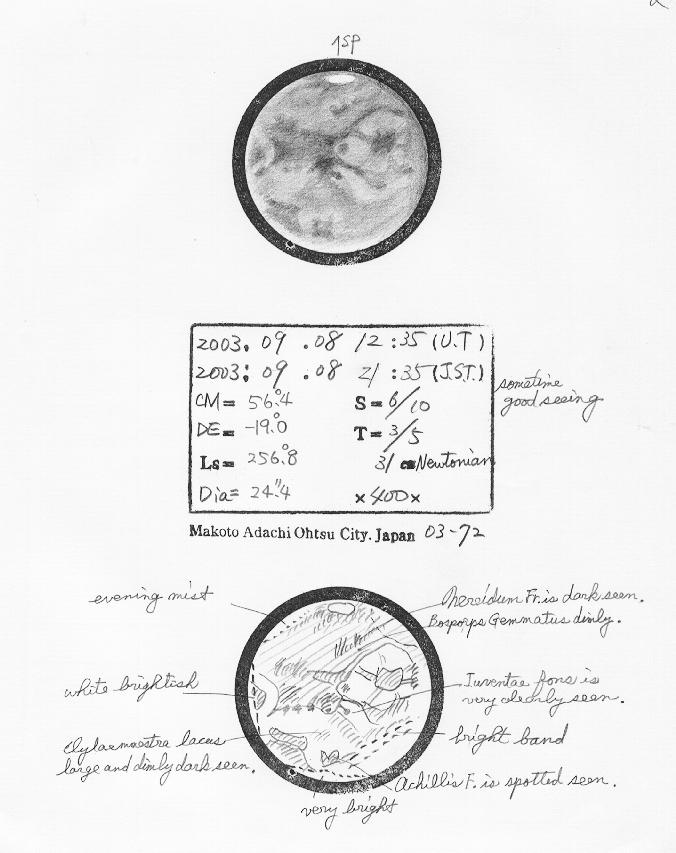 ↑SP
2003. 09 .08 12 :35 (U.T)
2003: 09 .08 21 :35 (J.S.T.)
CM= 56°.4 S= 6/10
DE= -19°.0 T= 3/5
Ls= 256°.8 31 cm Newtonian
Dia= 24".4 ×400×
sometime
good seeing
Makoto Adachi Ohtsu City. Japan 03-72
evening mist
Nereidum Fr. is dark seen.
Bosporps Gemmatus dimly.
white brightish
Iuventae fons is
very clearly seen.
lacus
large and dimly dark seen.
bright band
Achillis F. is spotted seen.
very bright